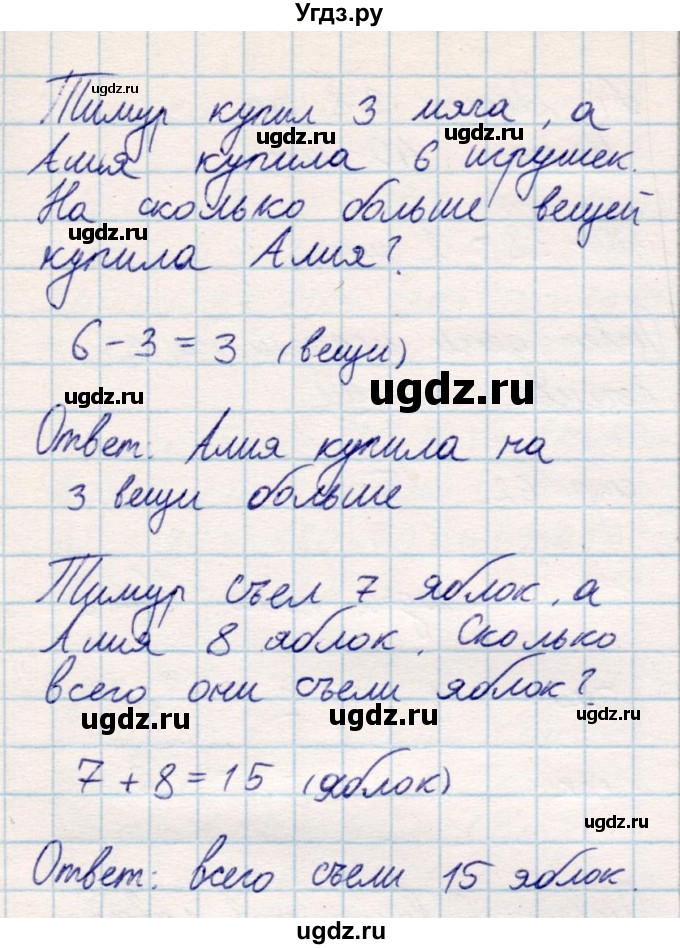 Угдз.ру
ugdz.ru
Тимур купил 3 мяча, а
ugdz.ru ugdz.ru
Алия купила 6 игрушек.
На сколько больше вещей
ugdz.ru
купила Алия?
6 - 3 = 3 (вещи)
ugdz.ru ugdz.ru
Ответ: Алия купила на
3 вещи больше
Тимур съел 7 яблок, а
Алия 8 яблок. Сколько
всего они съели яблок?
ugdz.ru ugdz.ru ugdz.ru
7 + 8 = 15 (яблок)
ugdz.ru
Ответ: всего съели 15 яблок.
ugdz.ru